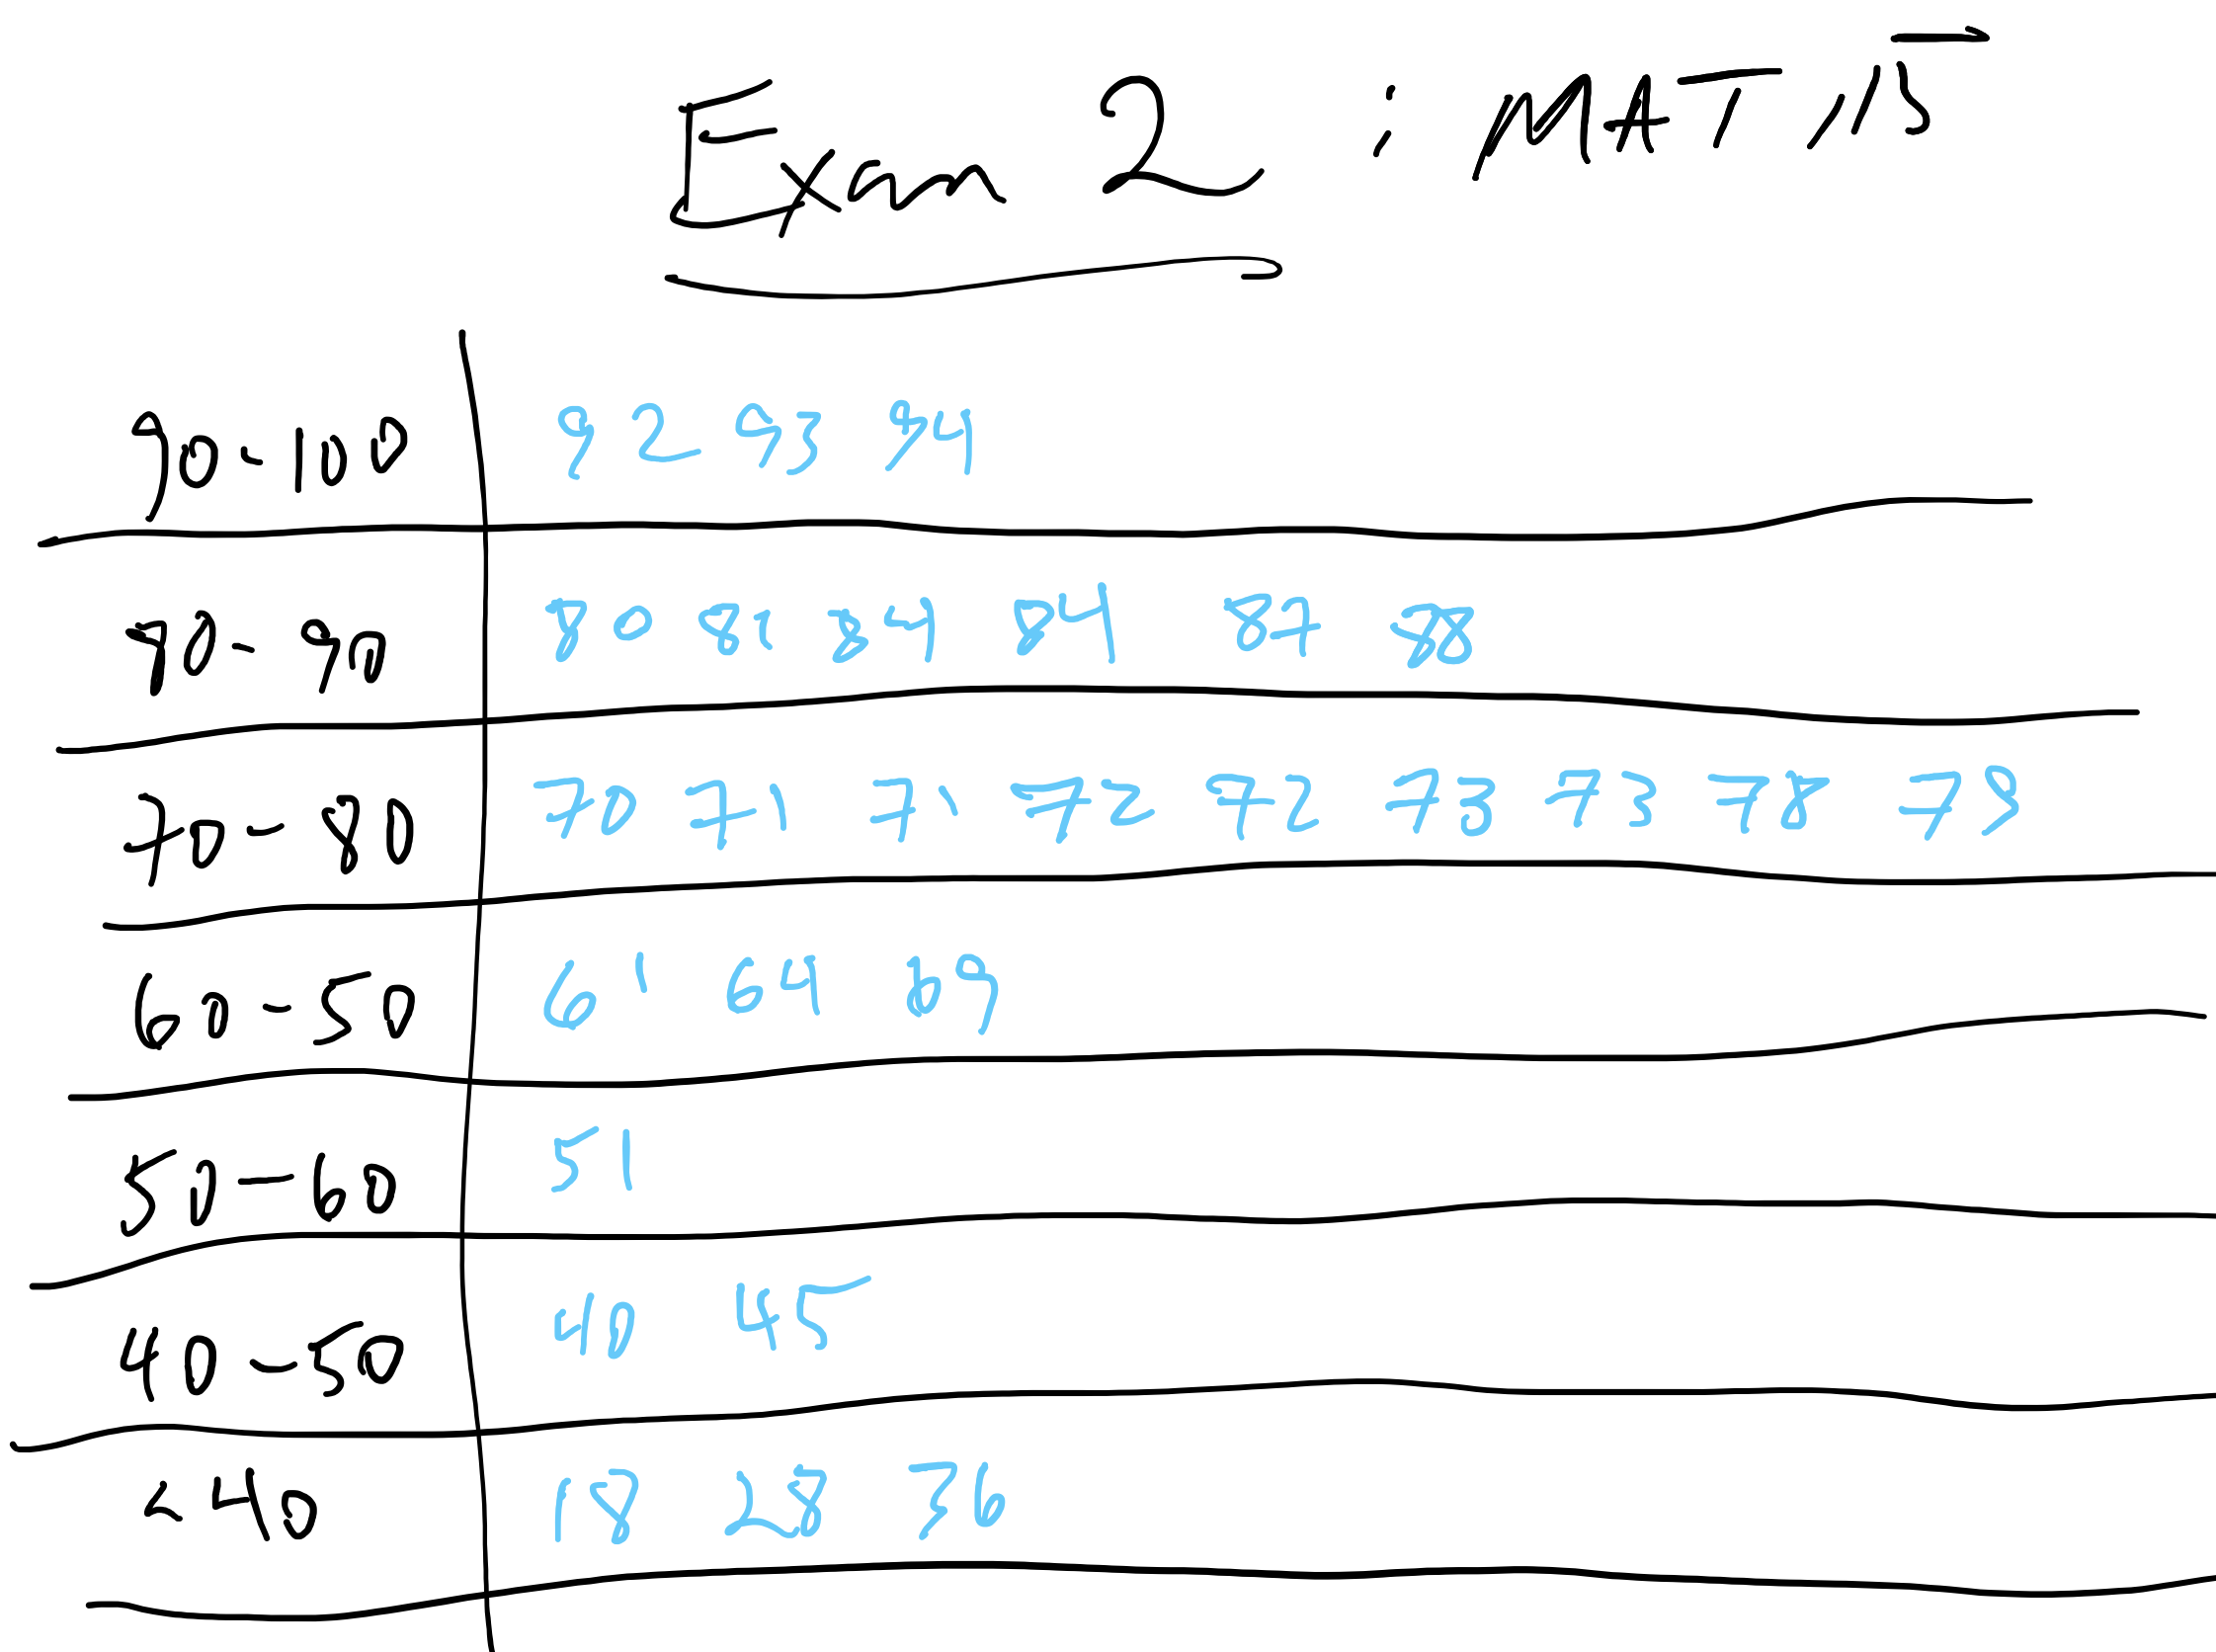 Exam 2 : MAT 115
90-100 92 93 94
80-90 80 81 84 84 87 88
70-80 70 71 71 72 72 73 73 78 79
60-50 61 64 69
50-60 51
40-50 40 45
<40 18 28 36